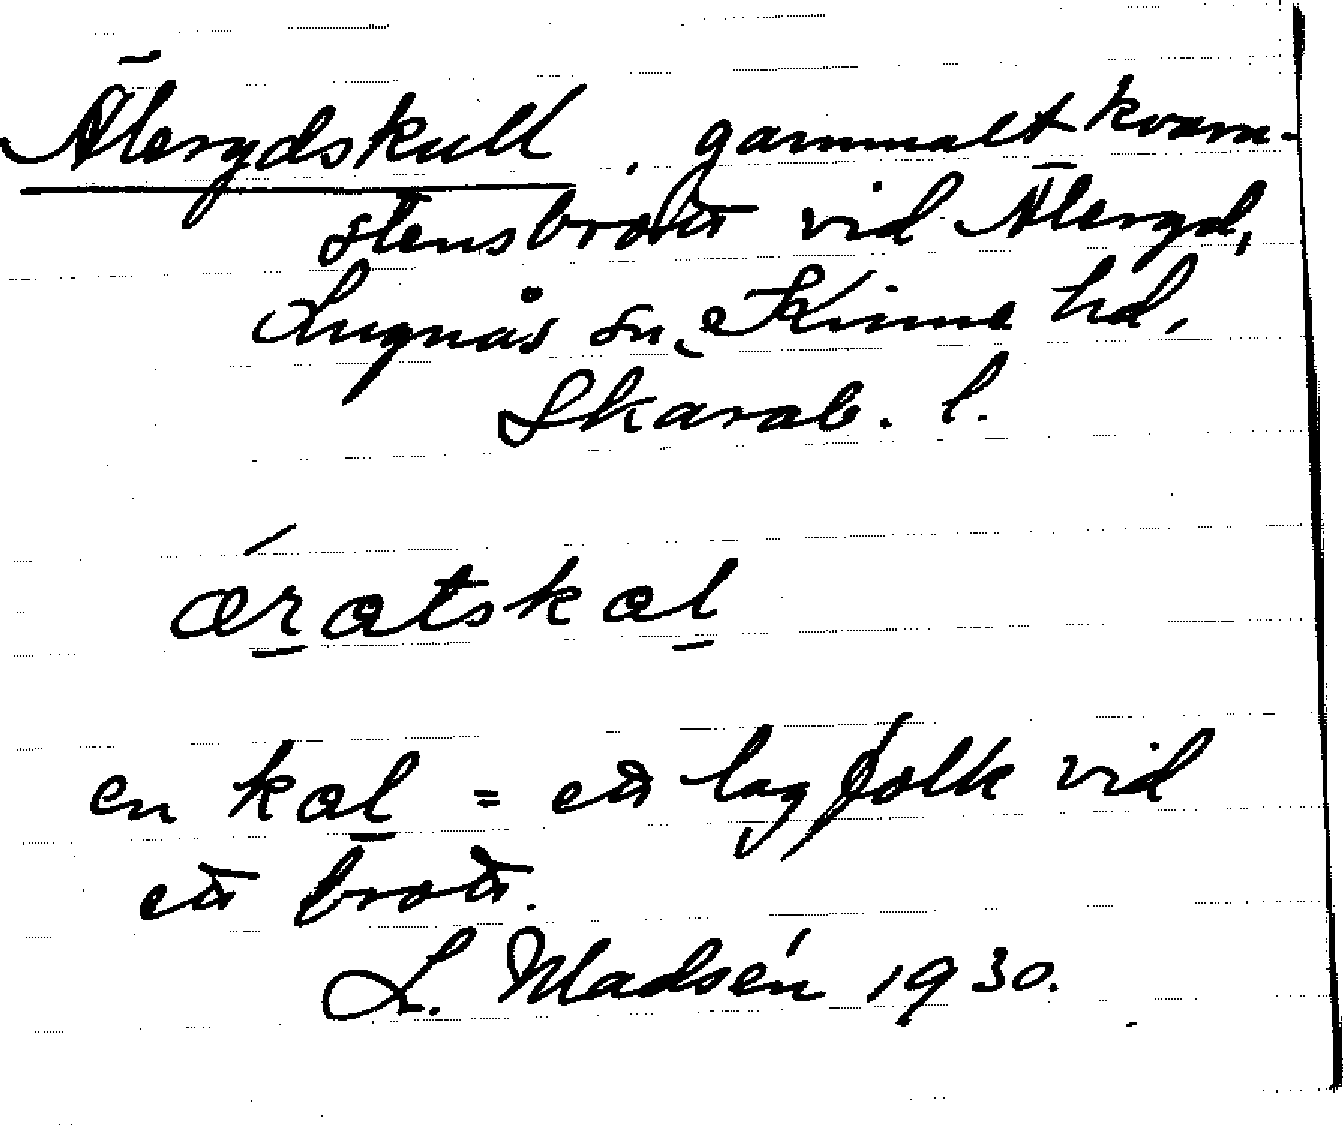 Älerydskull, gammalt kvarn-
stensbrott vid Äleryd,
Lugnås sn, Kinne hd,
Skarab. l.
en kal = ett lag folk vid
ett brott.
L. Madsén 1930.